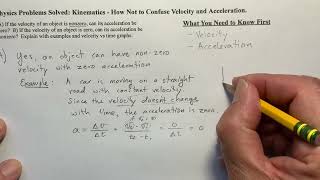 Physics Problems Solved: Kinematics - How Not to Confuse Velocity and Acceleration.
A) If the velocity of an object is nonzero, can its acceleration be
zero? B) If the velocity of an object is zero, can its acceleration be
nonzero? Explain with examples and velocity vs time graphs.
What You Need to Know First
- Velocity
- Acceleration
Yes, an object can have non-zero
velocity with zero acceleration
Example: A car is moving on a straight
road with constant velocity.
Since the velocity doesn't change
with time, the acceleration is zero.
a = ΔV/Δt = / t₂-t₁ = 0/Δt = 0